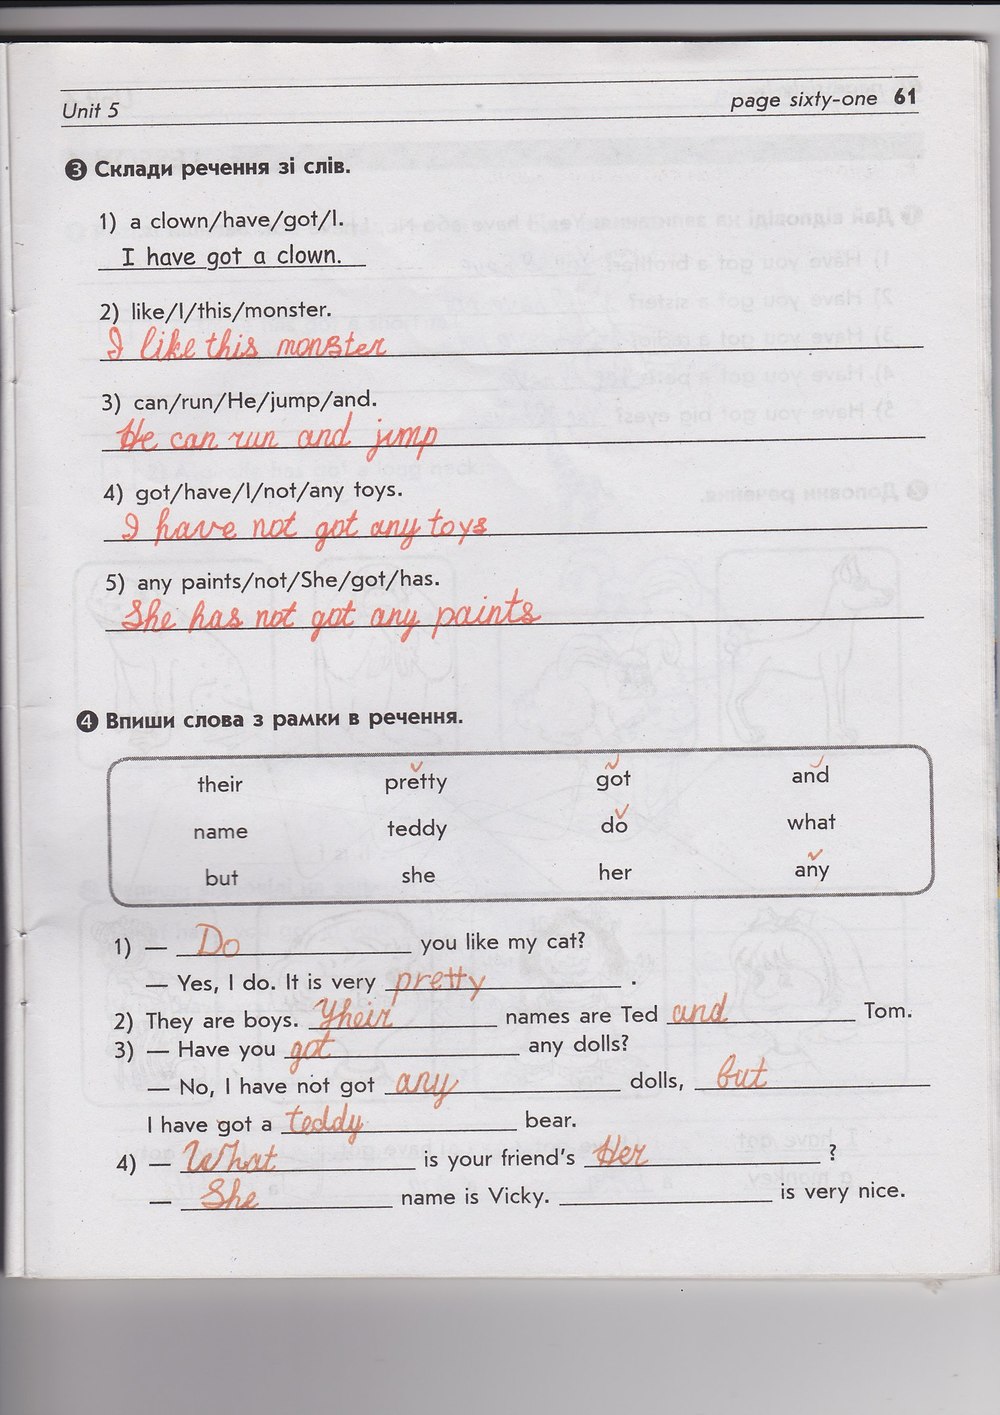 Unit 5 page sixty-one 61
3 Склади речення зі слів.
1) a clown/have/got/I.
I have got a clown.
2) like/I/this/monster.
I like this monster
3) can/run/He/jump/and.
He can run and jump
4) got/have/I/not/any toys.
I have not got any toys
5) any paints/not/She/got/has.
She has not got any paints
4 Впиши слова з рамки в речення.
their pretty got and
name teddy do what
but she her any
1) — Do you like my cat?
— Yes, I do. It is very pretty .
2) They are boys. Their names are Ted and Tom.
3) — Have you got any dolls?
— No, I have not got any dolls, but
I have got a teddy bear.
4) — What is your friend's Her ?
— She name is Vicky. is very nice.